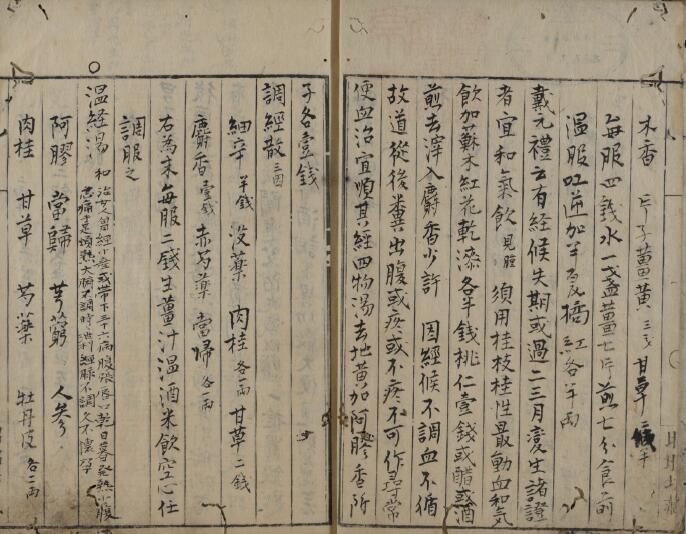 木香 片子薑黃 三 甘草
每服四錢水一盞薑七片煎七分食前
溫服吐逆加半夏橘紅各半兩
戴元禮云有經候失期或過二三月變生諸證
者宜和氣飲 須用桂枝桂性最動血和氣
飲加蘇木紅花乾漆各半錢桃仁壹錢或醋或酒
煎去滓入麝香少許 因經候不調血不循
故道從後糞出腹或疼或不疼不可作尋常
便血治宜順其經四物湯去地黃加阿膠香附
子各壹錢
調經散 三因
細辛 半錢 沒藥 肉桂 各一兩 甘草 二錢
麝香 壹錢 赤芍藥 當歸 各一兩
右為末每服二錢生薑汁溫酒米飲空心任
調服之
溫經湯 和
治女人曾經小產或帶下三十六病腹脹唇口乾日暮發熱小腹
急痛手足煩熱大腑不調時泄利經脉不調久不懷孕
阿膠 當歸 芎藭 人參
肉桂 甘草 芍藥 牡丹皮 各二兩